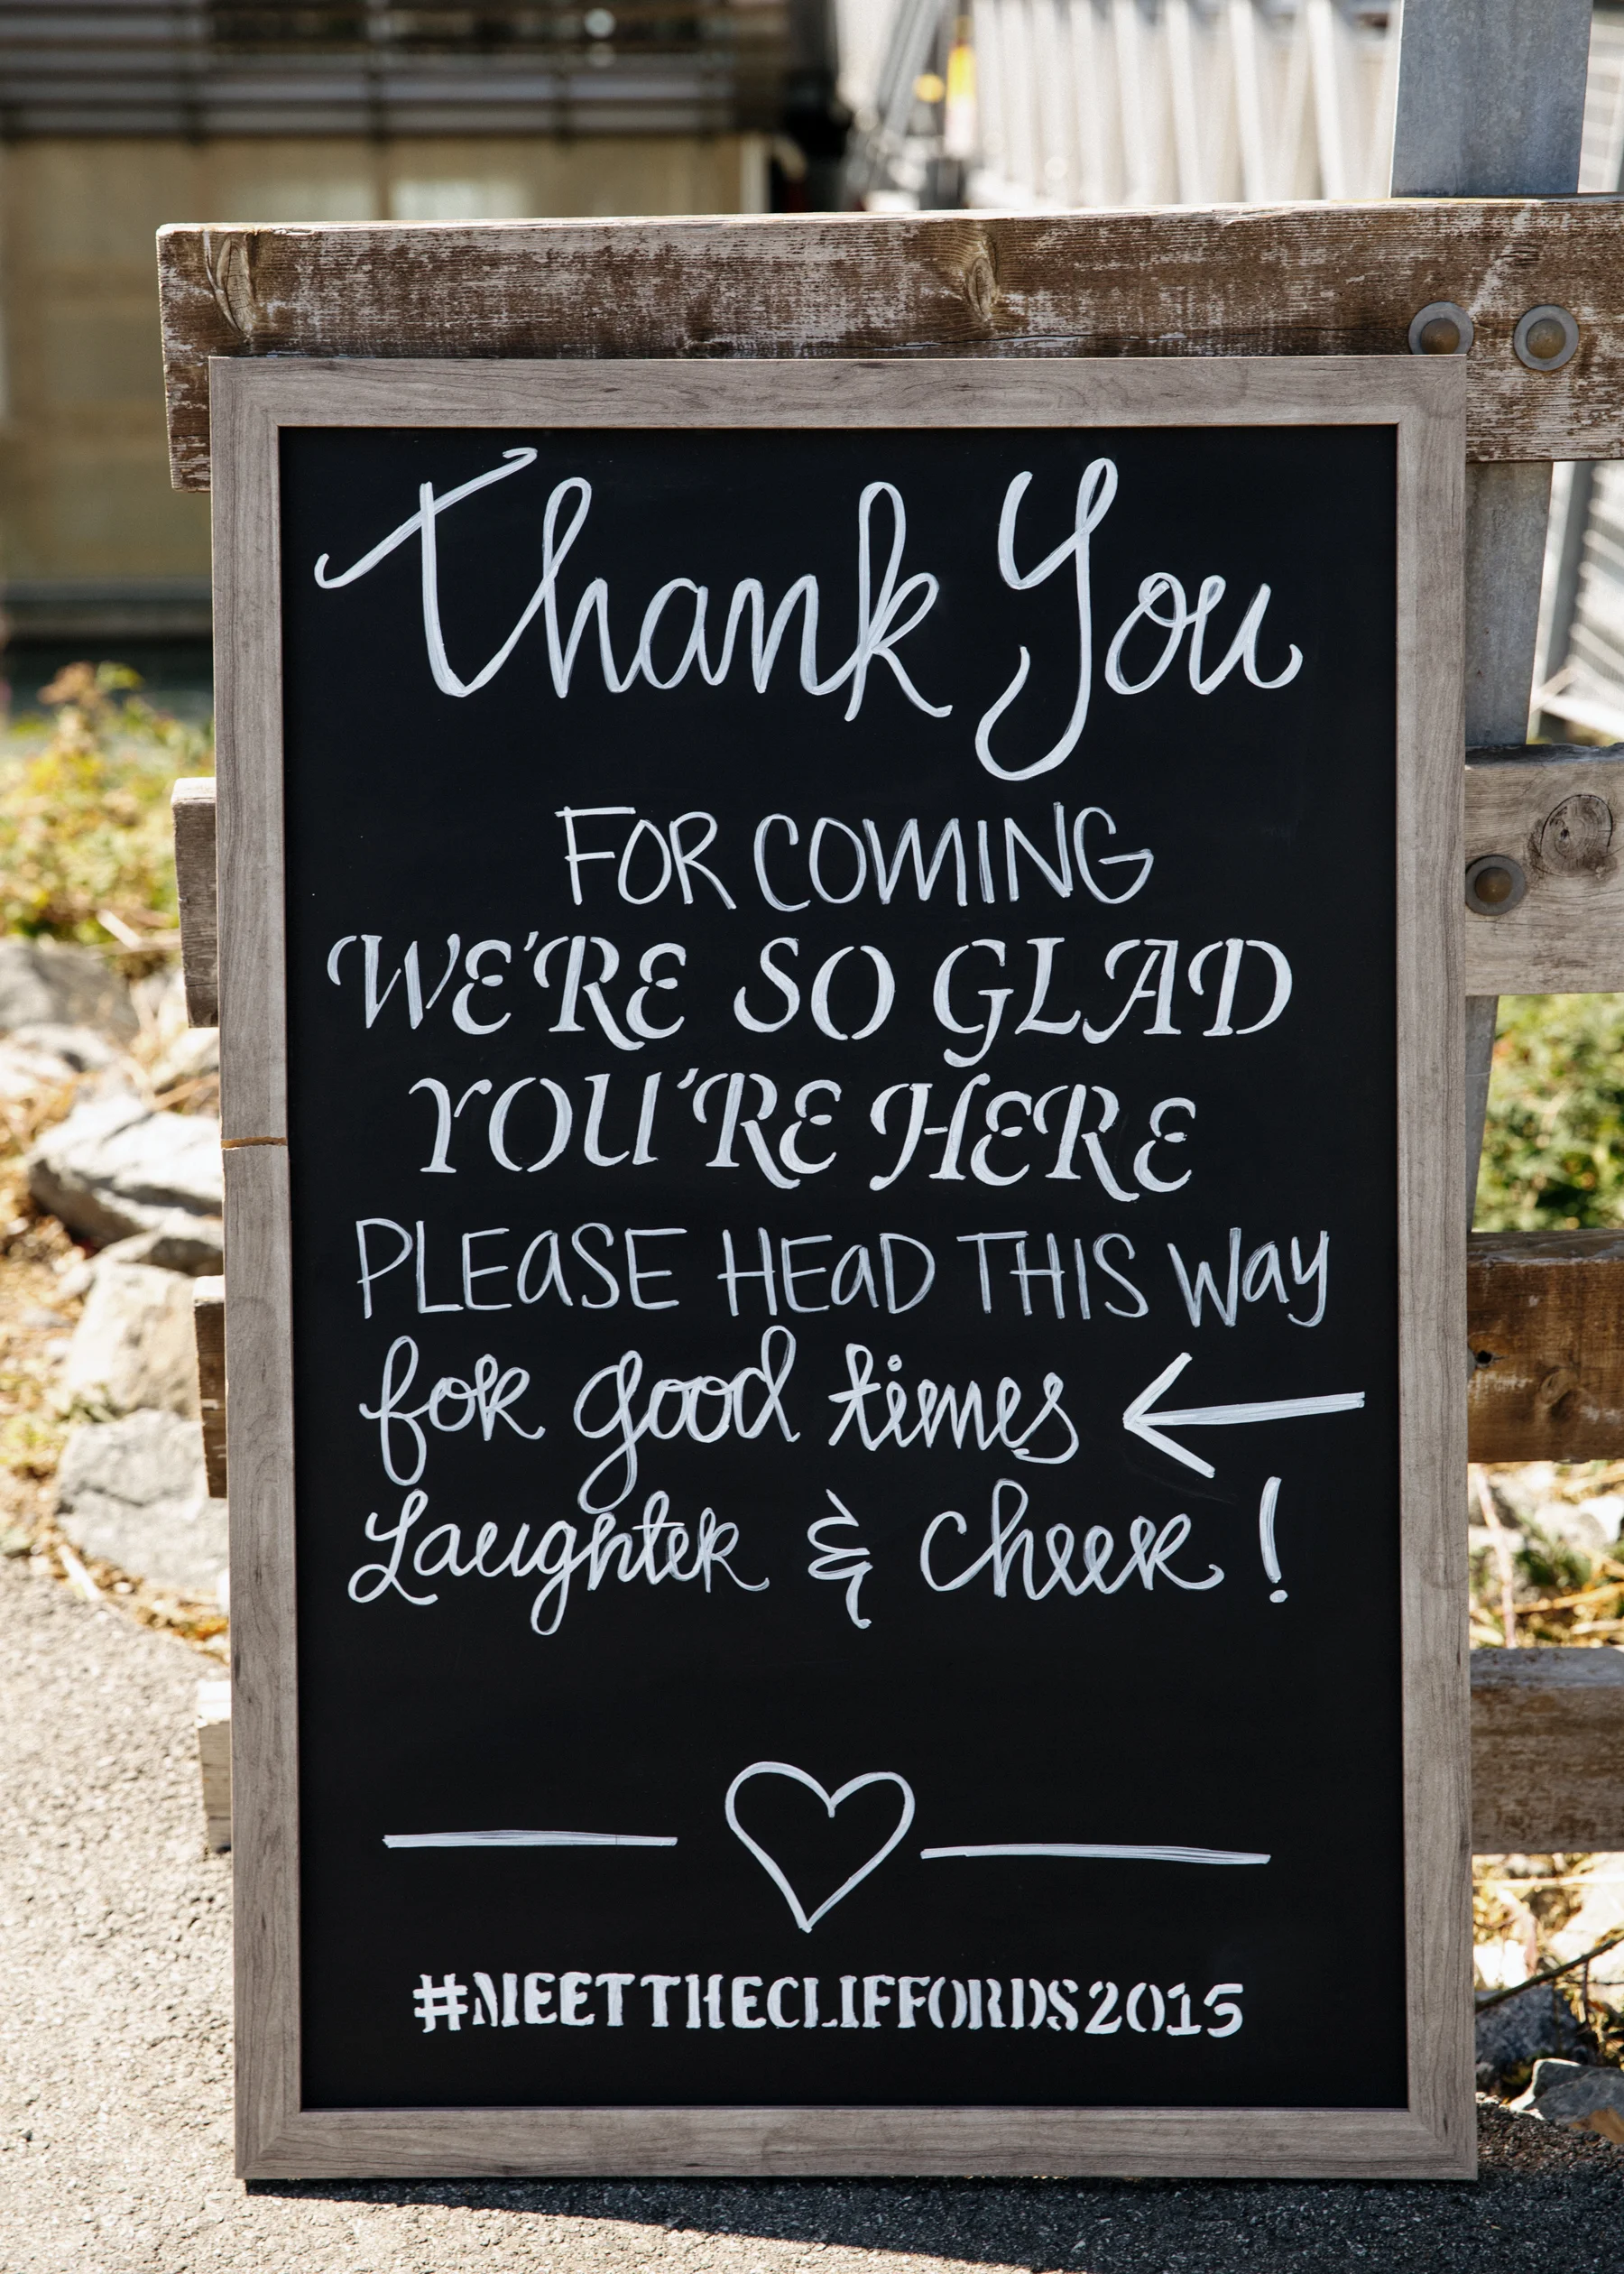 Thank You
FOR COMING
WE'RE SO GLAD
YOU'RE HERE
PLEASE HEAD THIS WAY
for good times ←
Laughter & cheer!
#MEETTHECLIFFORDS2015